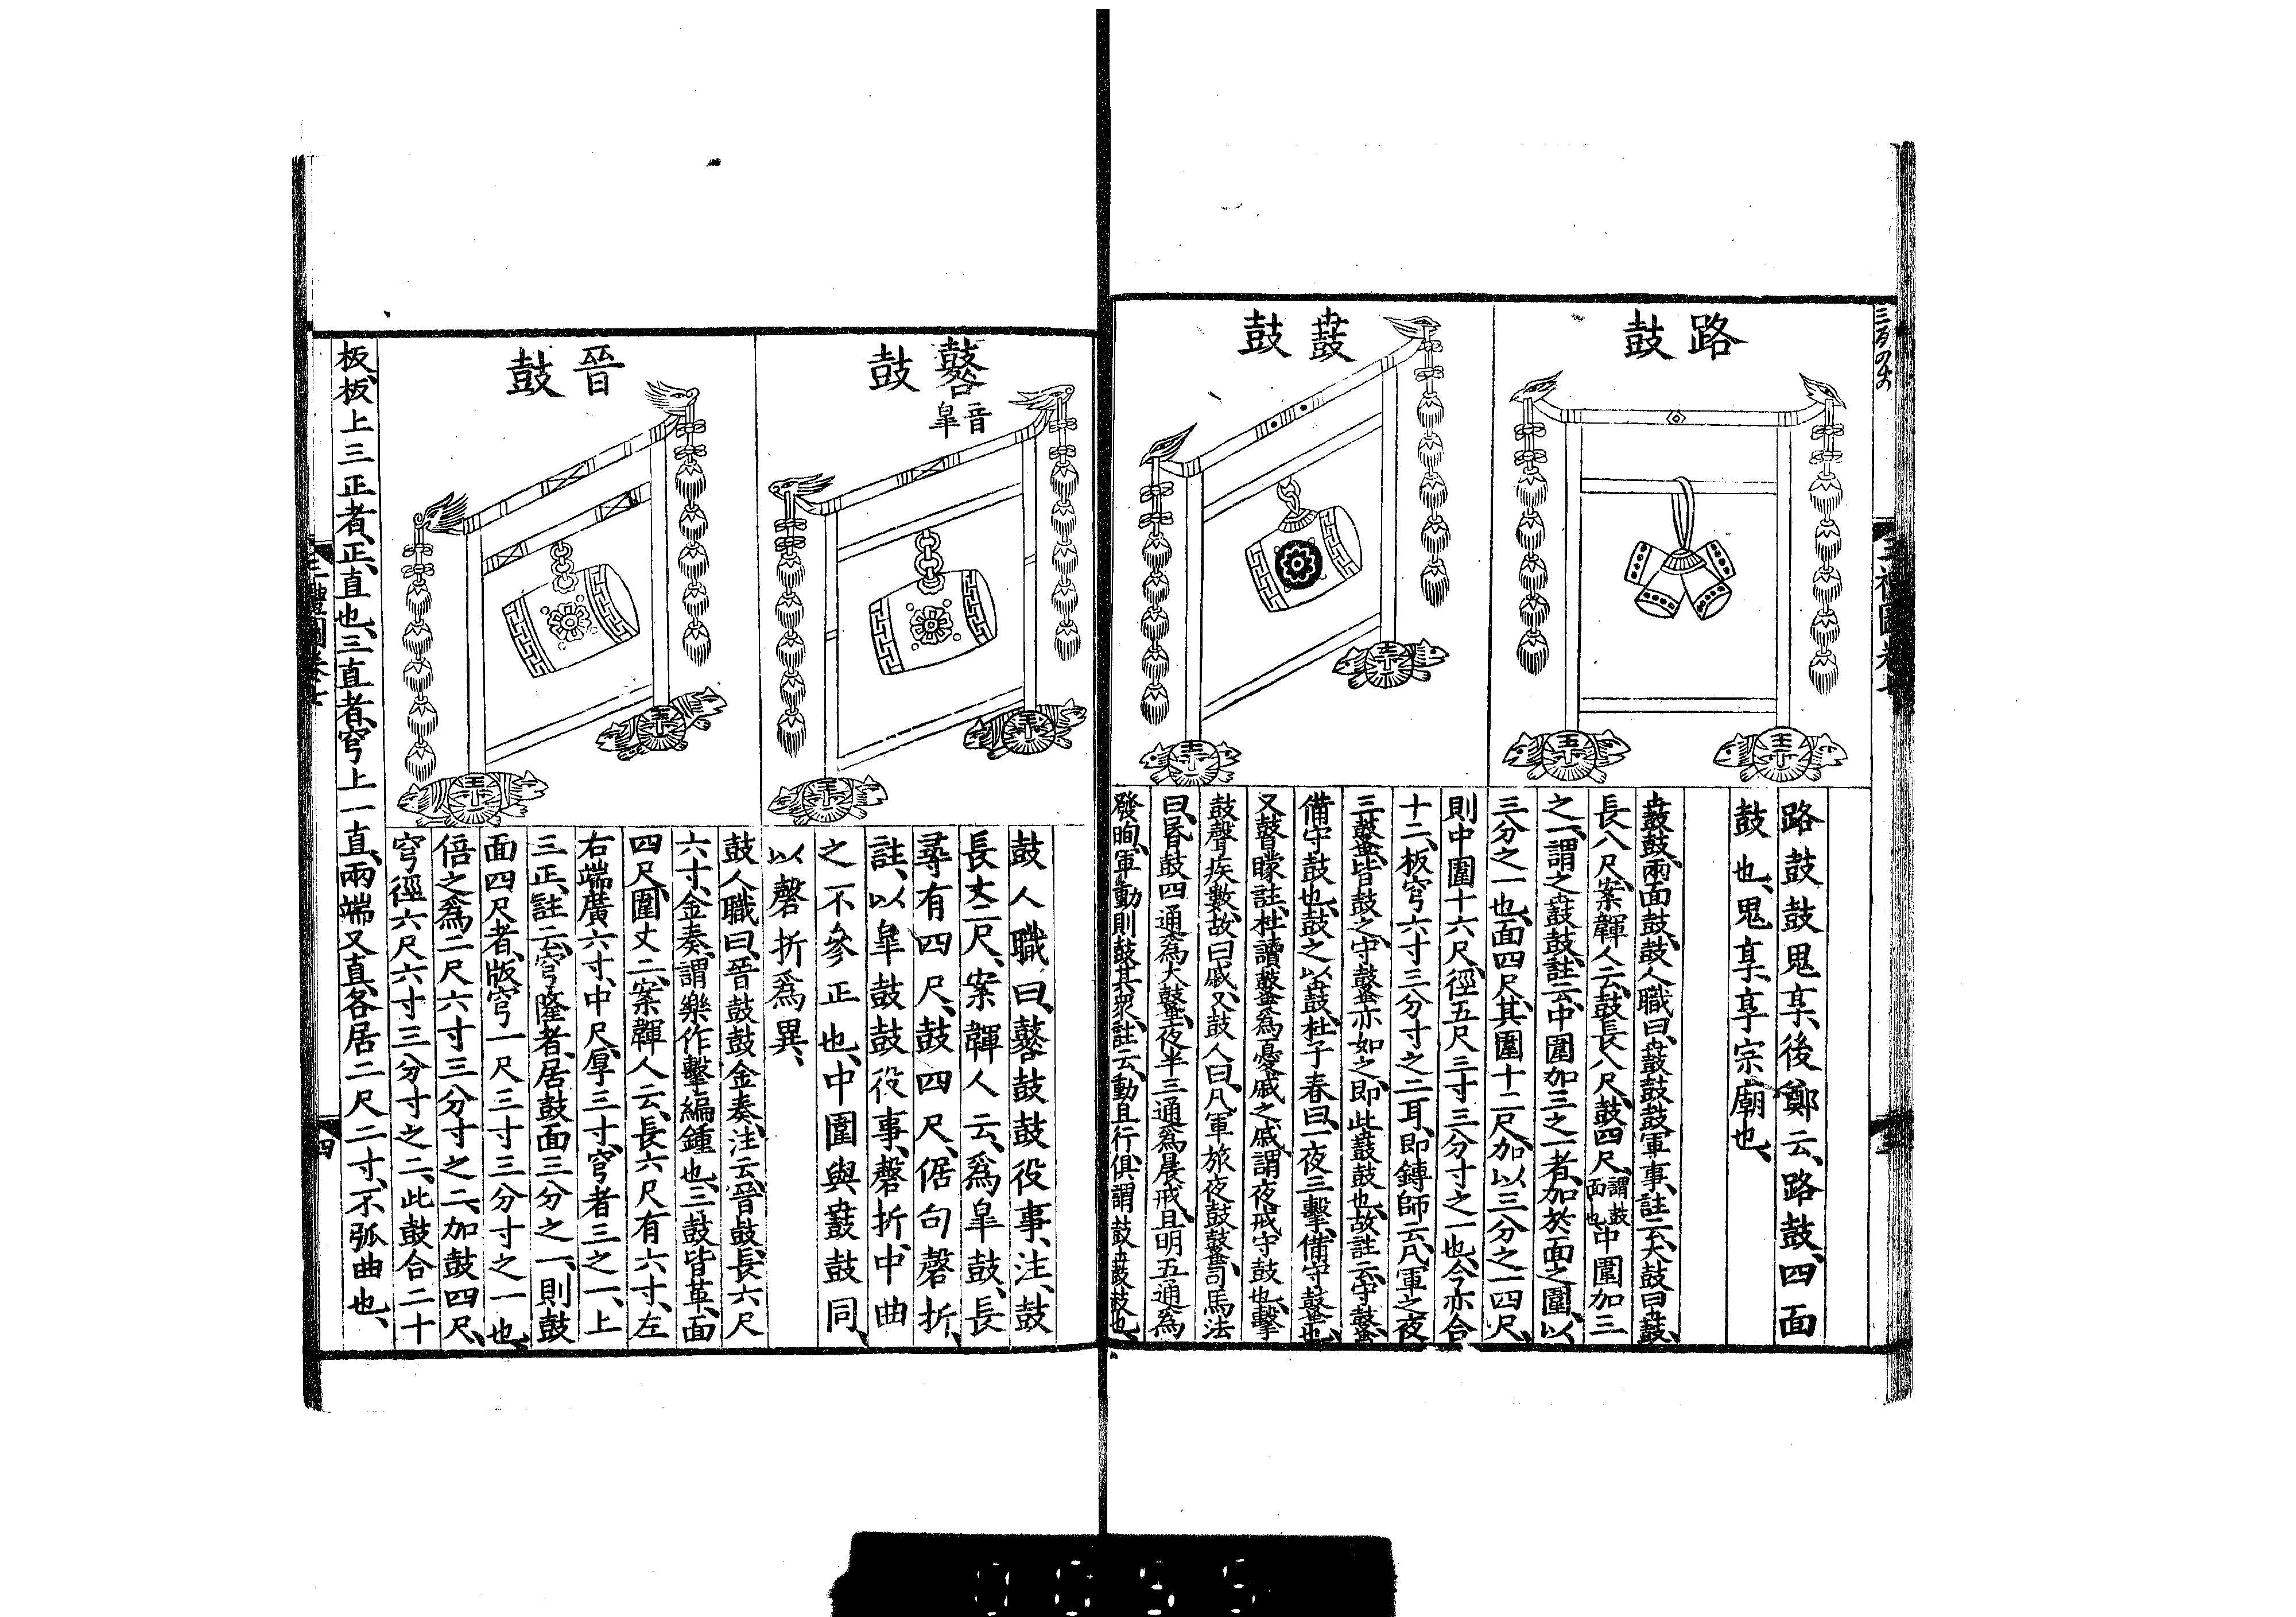 路鼓
鼖鼓
路鼓鼓鬼享後鄭云路鼓四面
鼓也鬼享享宗廟也
鼖鼓兩面鼓鼓人職曰鼖鼓鼓軍事註云大鼓曰鼖鼓
長八尺案韗人云鼓長八尺鼓四尺謂鼓面也中圍加三
之一謂之鼖鼓註云中圍加三之一者加於面之圍以
三分之一也面四尺其圍十二尺加以三分之一四尺
則中圍十六尺徑五尺三寸三分寸之一也今亦合
十二板穹六寸三分寸之二耳即鏄師云凡軍之夜
三鼜皆鼓之守鼜亦如之即此鼖鼓也故註云守鼜
備守鼓也鼓之以鼖鼓杜子春曰一夜三擊備守鼜也
又瞽矇註杜讀鼜為憂戚之戚謂夜戒守鼓也擊
鼓聲疾數故曰戚又鼓人曰凡軍旅夜鼓鼜司馬法
曰昏鼓四通為大鼜夜半三通為晨戒旦明五通為
發昫軍動則鼓其衆註云動且行俱謂鼓鼖鼓也
鼛鼓
音皐
晉鼓
鼓人職曰鼛鼓鼓役事注鼓
長丈二尺案韗人云爲皐鼓長
尋有四尺鼓四尺倨句磬折
註以皐鼓鼓役事磬折中曲
之不參正也中圍與鼖鼓同
以磬折爲異
鼓人職曰晉鼓鼓金奏注云晉鼓長六尺
六寸金奏謂樂作擊編鍾也三鼓皆革面
四尺圍丈二案韗人云長六尺有六寸左
右端廣六寸中尺厚三寸穹者三之一上
三正註云穹隆者居鼓面三分之一則鼓
面四尺者版穹一尺三寸三分寸之一也
倍之爲二尺六寸三分寸之二加鼓四尺
穹徑六尺六寸三分寸之二此鼓合二十
板板上三正者正直也三直者穹上一直兩端又直各居二尺二寸不弧曲也
三禮圖卷七
四